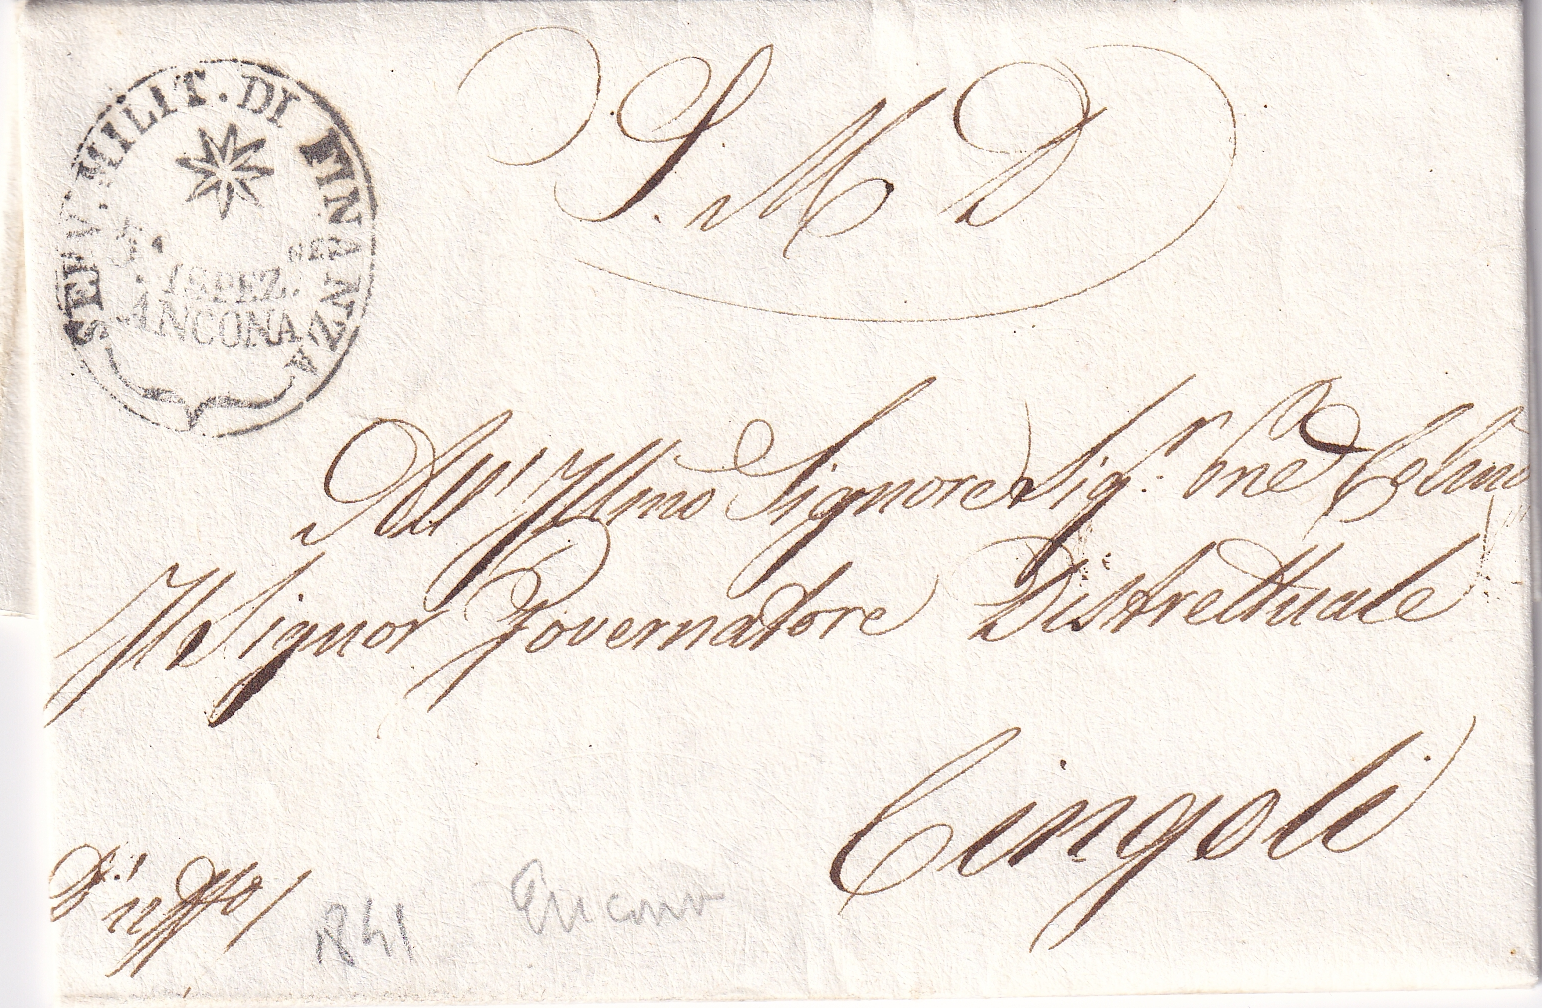 SERV. MILIT. DI FINANZA
ISPEZ.
ANCONA
S. M D
All' Illmo Signore Sig.r
Il Signor Governatore Distrettuale
Cingoli
D'uffo
1841